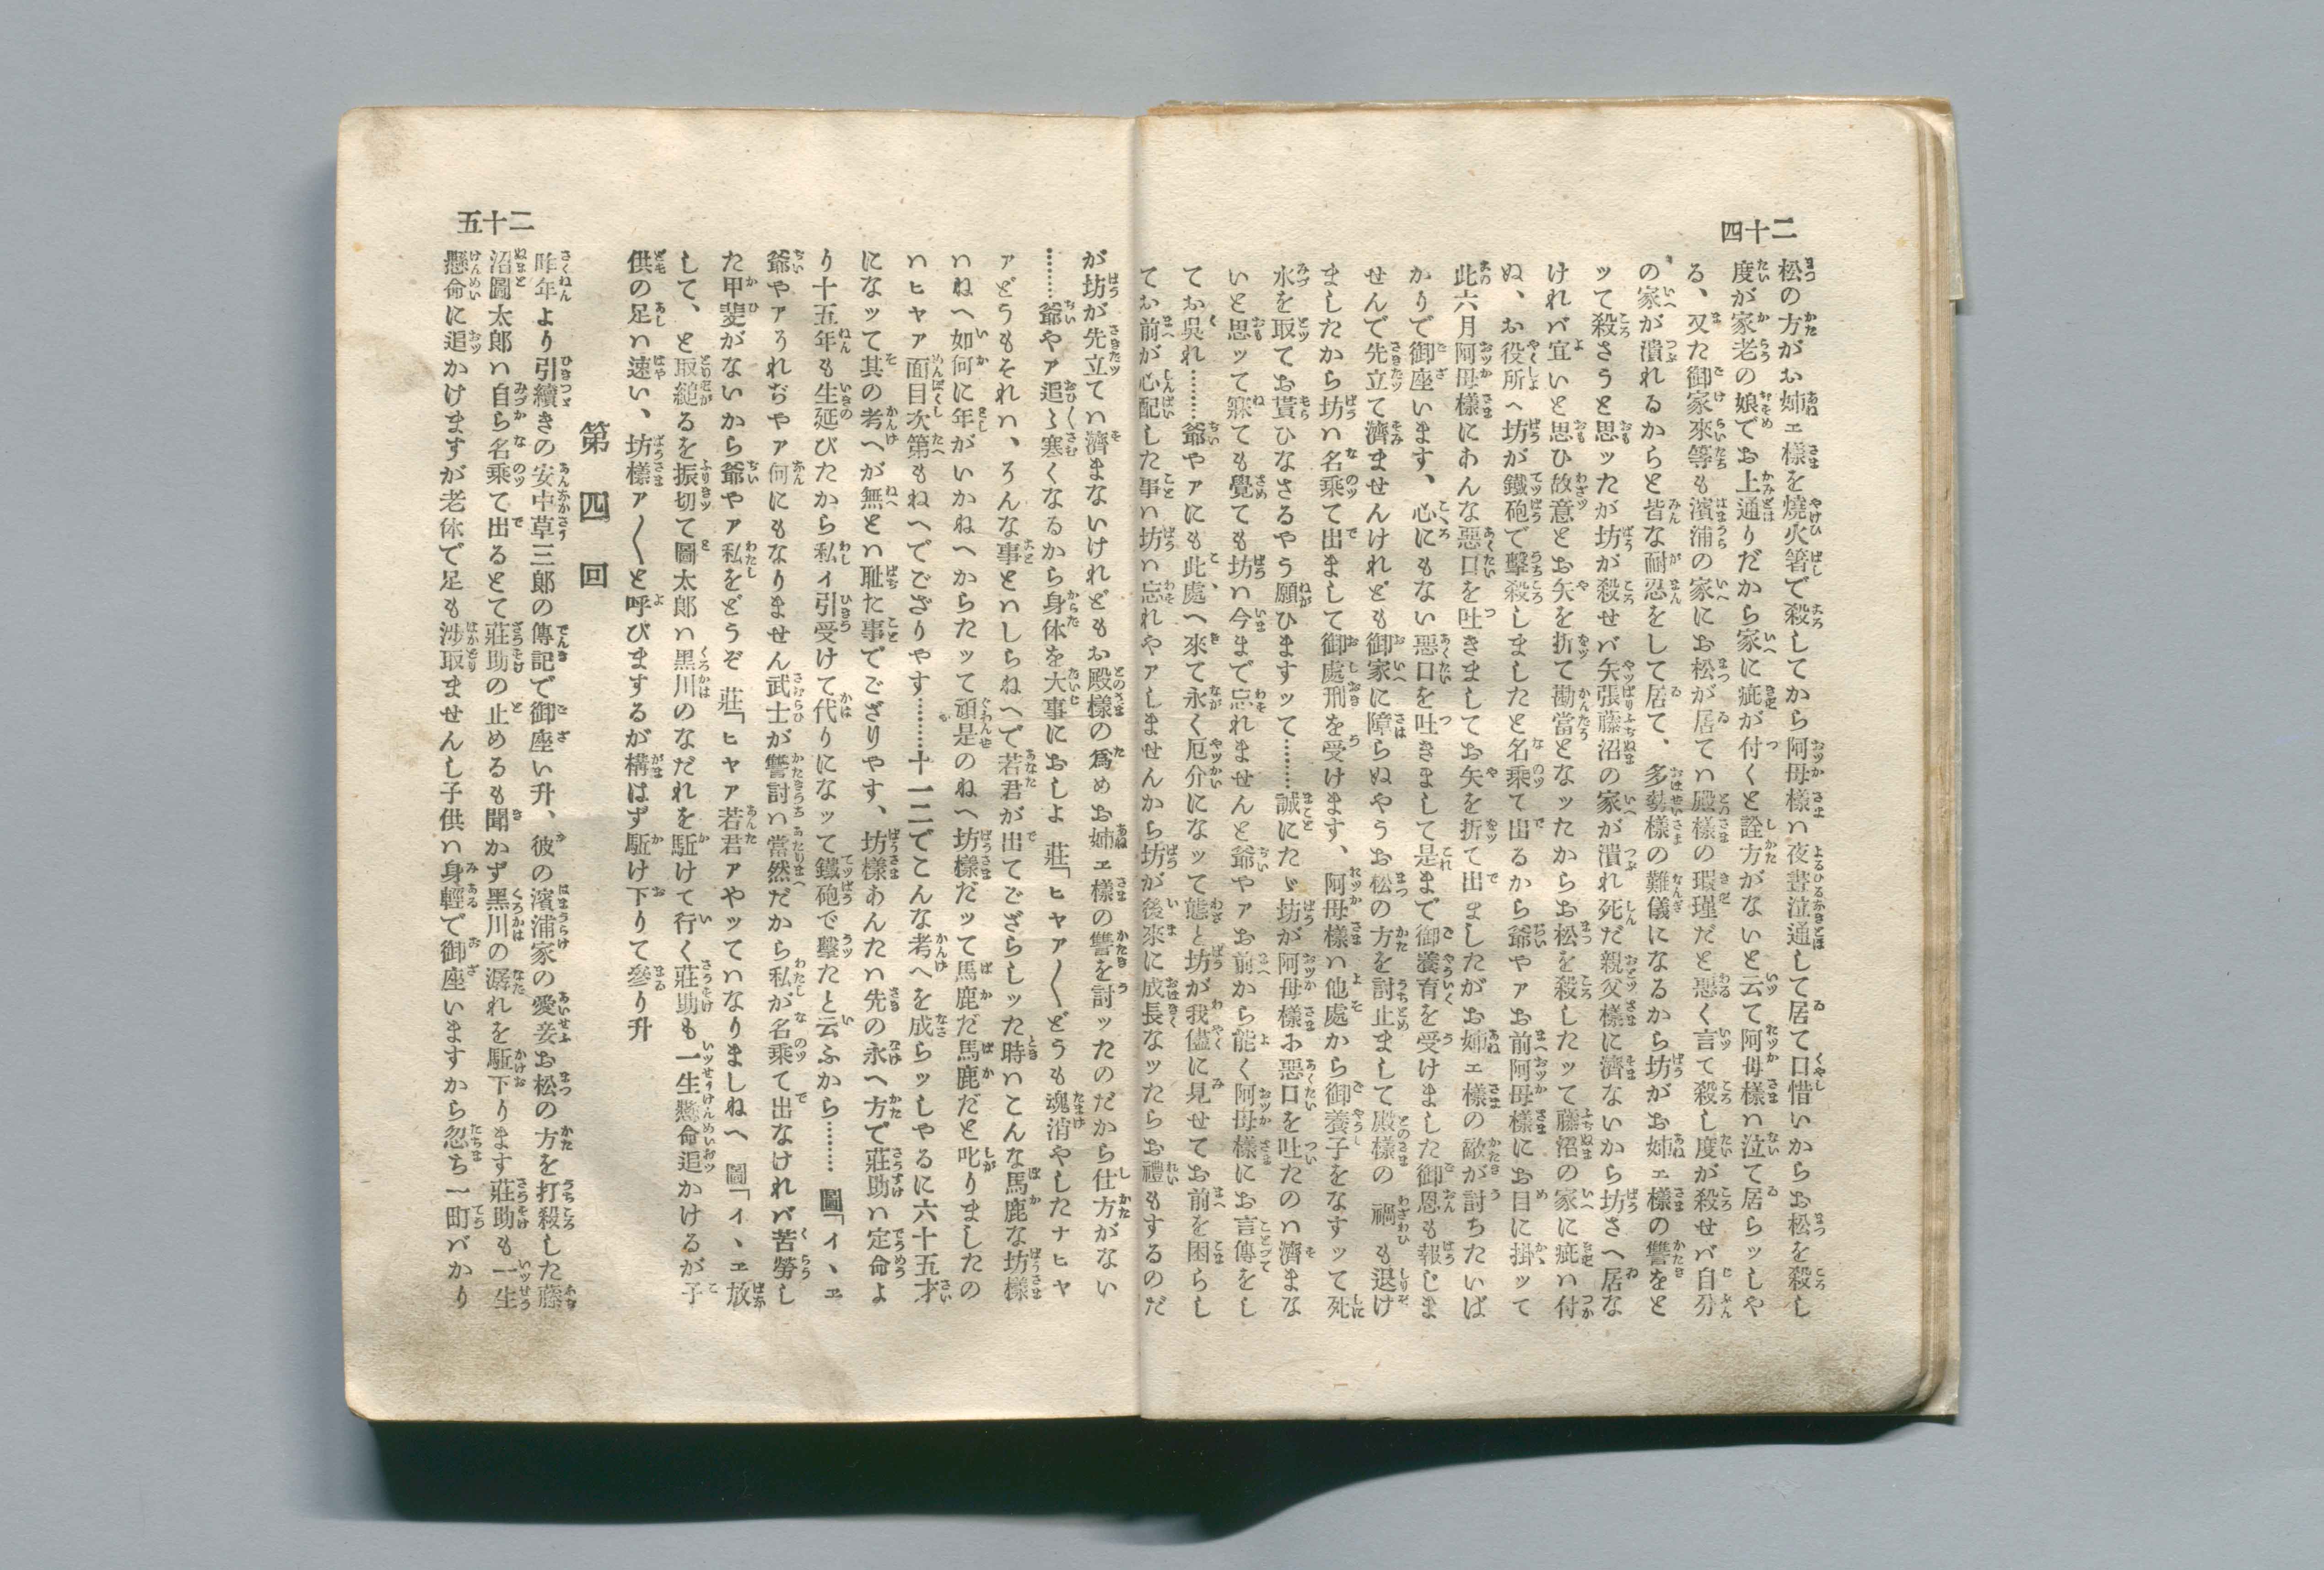 二十四
松の方がお姉ェ樣を燒火箸で殺してから阿母樣ハ夜晝泣通して居て口惜いからお松を殺し
度が家老の娘でお上通りだから家に疵が付くと詮方がないと云て阿母樣ハ泣て居らッしや
る、又た御家來等も濱浦の家にお松が居てハ殿樣の瑕瑾だと惡く言て殺し度が殺せバ自分
の家が潰れるからと皆な耐忍をして居て、多勢樣の難儀になるから坊がお姉ェ樣の讐をと
ッて殺さうと思ッたが坊が殺せバ矢張藤沼の家が潰れ死だ親父樣に濟ないから坊さへ居な
けれバ宜いと思ひ故意とお矢を折て勘當となッたからお松を殺したッて藤沼の家に疵ハ付
ぬ、お役所へ坊が鐵砲で擊殺しましたと名乘て出るから爺やアお前阿母樣にお目に掛ッて
此六月阿母樣にあんな惡口を吐きましてお矢を折て出ましたがお姉ェ樣の敵が討ちたいば
かりで御座います、心にもない惡口を吐きまして是まで御養育を受けました御恩も報じま
せんで先立て濟ませんけれども御家に障らぬやうお松の方を討止まして殿樣の禍も退け
ましたから坊ハ名乘て出まして御處刑を受けます、阿母樣ハ他處から御養子をなすッて死
水を取てお貰ひなさるやう願ひますッて………誠にたゞ坊が阿母樣お惡口を吐たのハ濟まな
いと思ッて寐ても覺ても坊ハ今まで忘れませんと爺やアお前から能く阿母樣にお言傳をし
てお呉れ………爺やアにも此處へ來て永く厄介になッて態と坊が我儘に見せてお前を困らし
てお前が心配した事ハ坊ハ忘れやアしませんから坊が後來に成長なッたらお禮もするのだ
が坊が先立てハ濟まないけれどもお殿樣の爲めお姉ェ樣の讐を討ッたのだから仕方がない
………爺やア追〻寒くなるから身体を大事におしよ 莊「ヒヤア〱どうも魂消やしたナヒヤ
アどうもそれハ、ろんな事とハしらねへで若君が出てござらしッた時ハこんな馬鹿な坊樣
ハねへ如何に年がいかねへからたッて頑是のねへ坊樣だッて馬鹿だ馬鹿だと叱りましたの
ハヒヤア面目次第もねへでござりやす………十一二でこんな考へを成らッしやるに六十五才
になッて其の考へが無とハ耻た事でござりやす、坊樣あんたハ先の永へ方で莊助ハ定命よ
り十五年も生延びたから私イ引受けて代りになッて鐵砲で擊たと云ふから……… 圖「イヽヱ
爺やアうれぢやア何にもなりません武士が讐討ハ當然だから私が名乘て出なけれバ苦勞し
た甲斐がないから爺やア私をどうぞ 莊「ヒヤア若君アやッていなりましねへ 圖「イヽヱ放
して、と取縋るを振切て圖太郎ハ黑川のなだれを駈けて行く莊助も一生懸命追かけるが子
供の足ハ速い、坊樣ア〱と呼びまするが構はず駈け下りて參り升
第四回
昨年より引續きの安中草三郎の傳記で御座い升、彼の濱浦家の愛妾お松の方を打殺した藤
沼圖太郎ハ自ら名乘て出るとて莊助の止めるも聞かず黑川の瀑れを駈下ります莊助も一生
懸命に追かけますが老休で足も涉取ませんし子供ハ身輕で御座いますから忽ち一町バかり
二十五